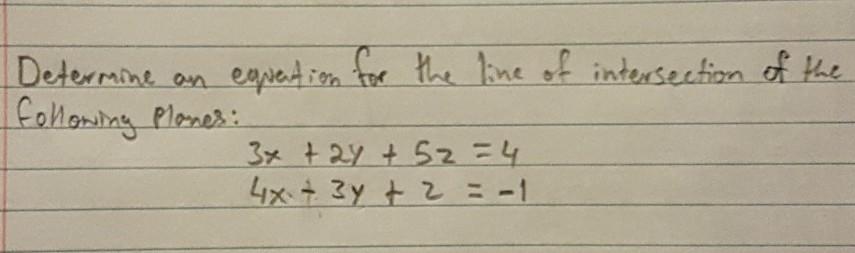 Determine an equation for the line of intersection of the
following planes:
3x + 2y + 5z = 4
4x + 3y + z = -1